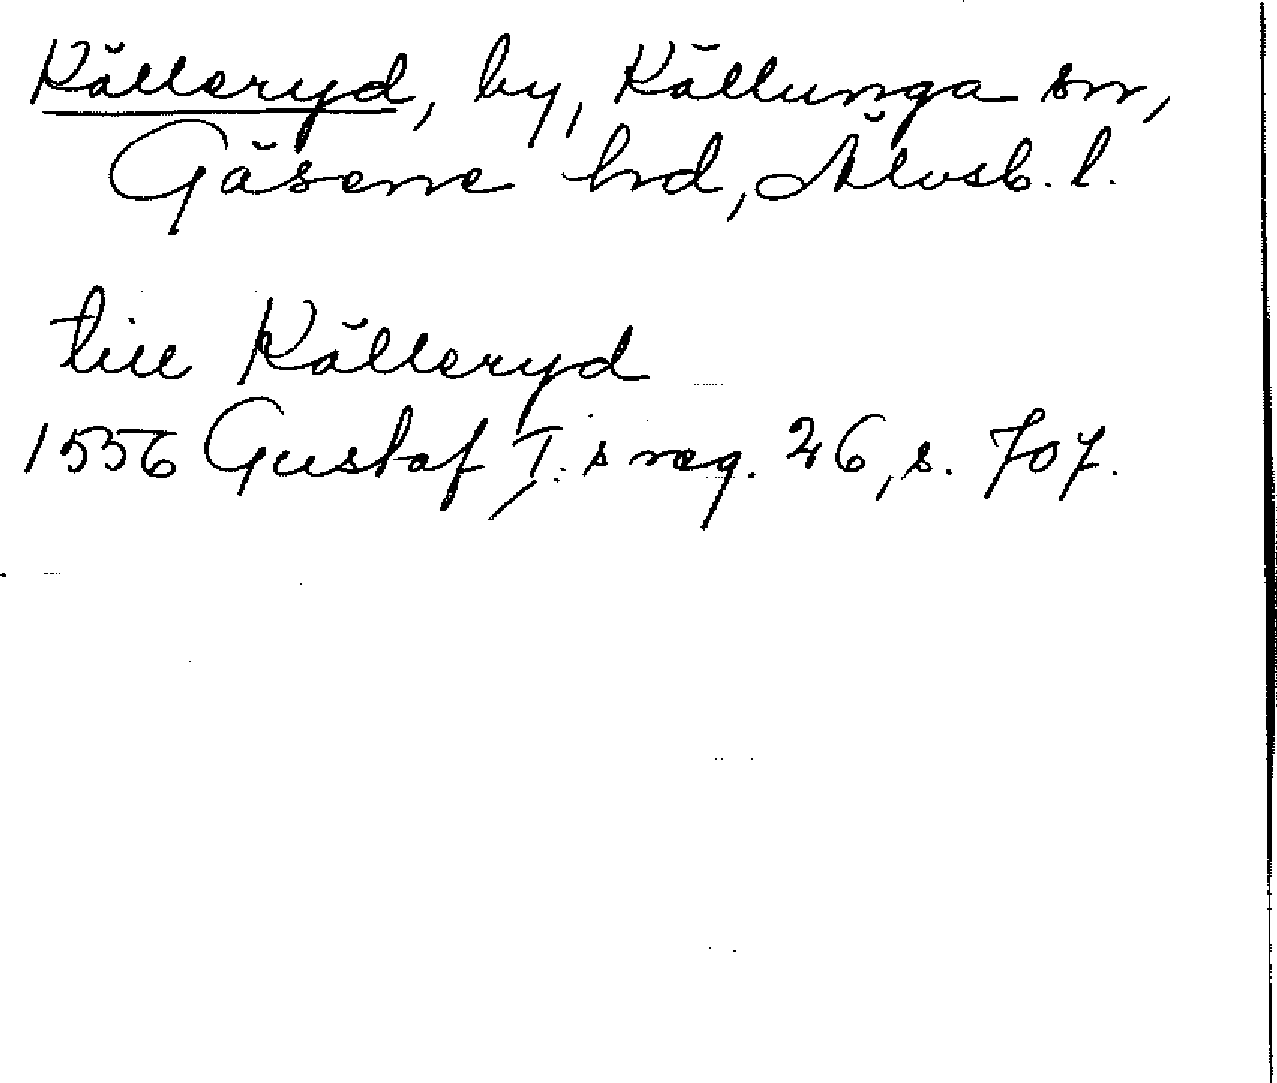 Källeryd, by, Källunga sn,
Gäsene hd, Älvsb. l.
till Källeryd
1556 Gustaf I.s reg. 26, s. 707.